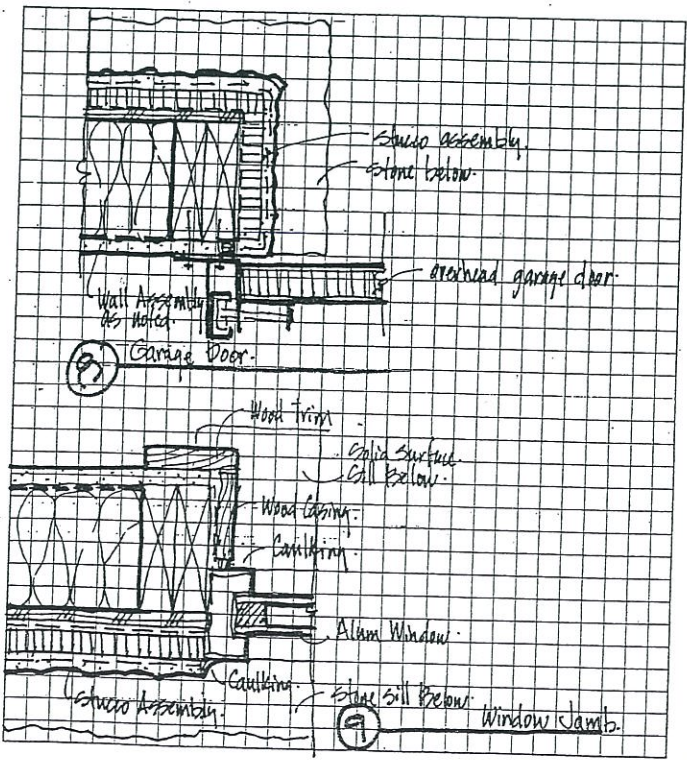 Stucco assembly.
Stone below.
overhead garage door.
Wall Assembly
as noted.
8 Garage Door.
Wood Trim
Solid Surface
Sill Below.
Wood Casing.
Caulking.
Alum Window.
Caulking.
Stucco Assembly.
Stone Sill Below.
9 Window Jamb.